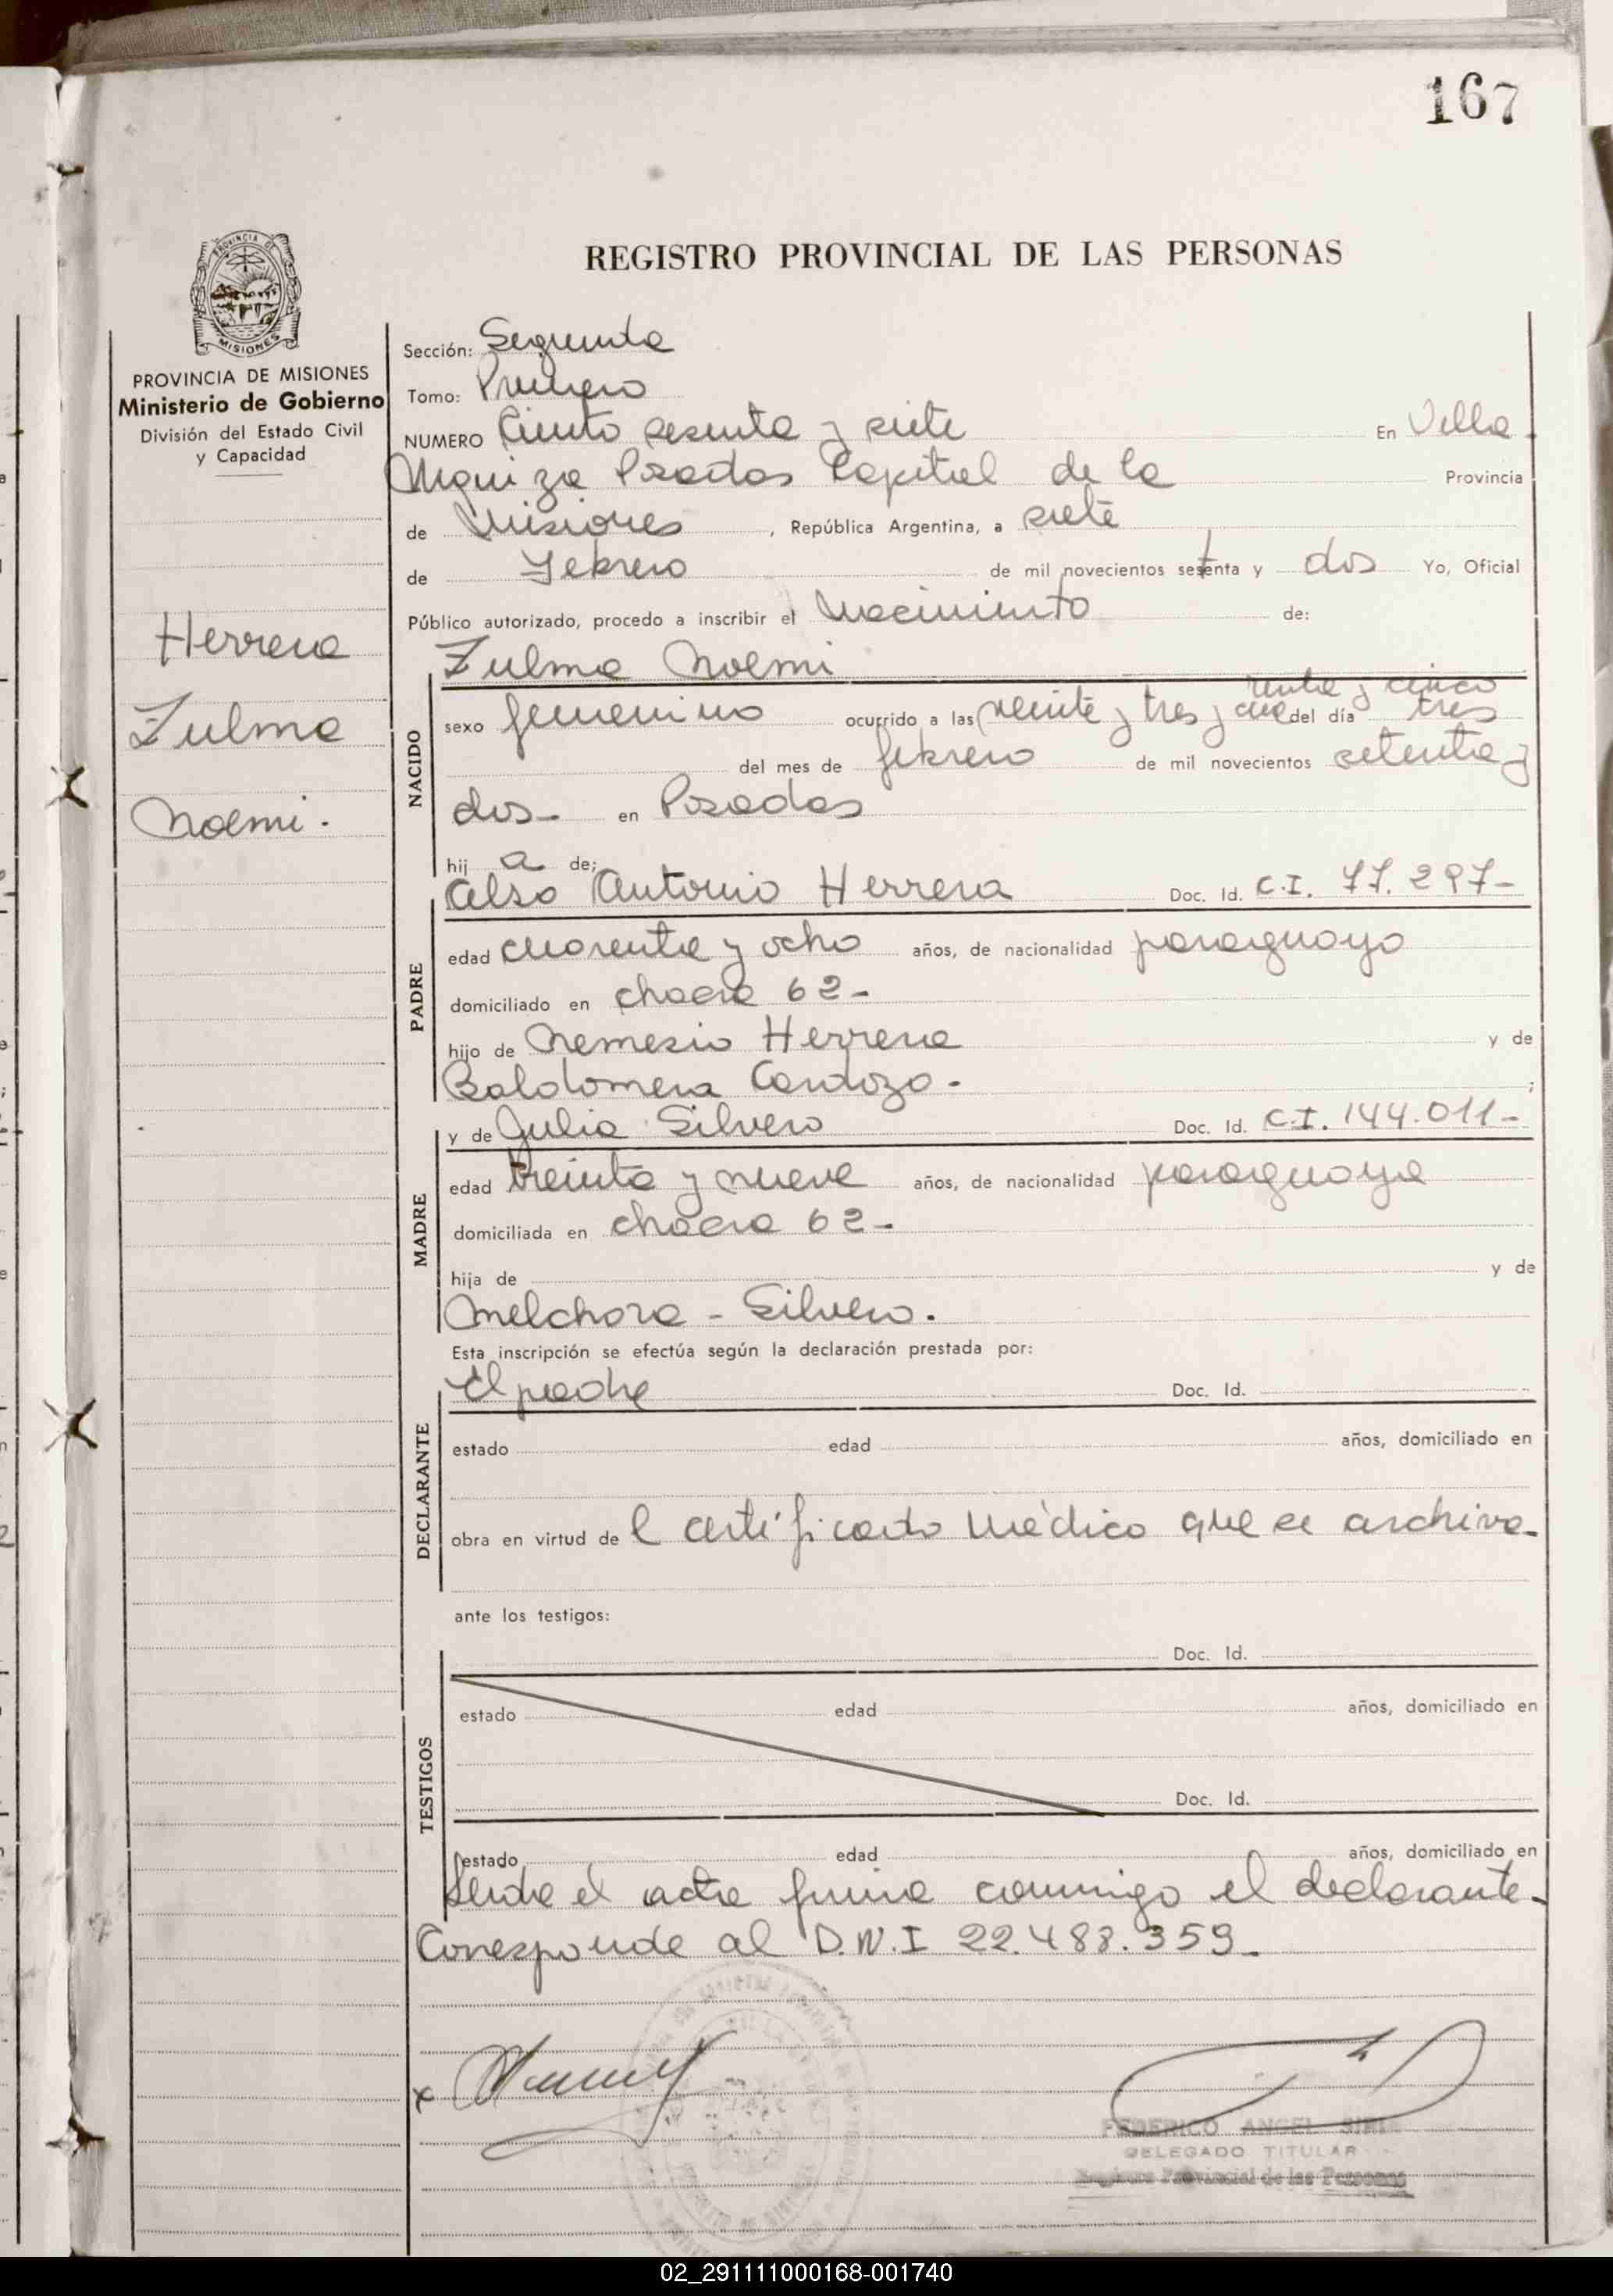 167
REGISTRO PROVINCIAL DE LAS PERSONAS
PROVINCIA DE
MISIONES
PROVINCIA DE MISIONES
Ministerio de Gobierno
División del Estado Civil
y Capacidad
Herrera
Zulma
Noemi.
Sección: Segunda
Tomo: Primero
NUMERO Ciento sesenta y siete En Villa
Urquiza Posadas Capital de la Provincia
de Misiones, República Argentina, a siete
de Febrero de mil novecientos setenta y dos Yo, Oficial
Público autorizado, procedo a inscribir el Nacimiento de:
Zulma Noemi
NACIDO
renta y cinco
sexo femenino ocurrido a las veinte y tres y cua del día tres
del mes de febrero de mil novecientos setenta y
dos- en Posadas
hij a de:
PADRE
Also Antonio Herrera Doc. Id. C.I. 77.297-
edad cuarenta y ocho años, de nacionalidad paraguayo
domiciliado en chacra 62-
hijo de Nemesio Herrera y de
Baldomera Cardozo- ;
MADRE
y de Julia Silvero Doc. Id. C.I. 144.011-
edad treinta y nueve años, de nacionalidad paraguaya
domiciliada en chacra 62-
hija de y de
Melchora - Silvero.
Esta inscripción se efectúa según la declaración prestada por:
DECLARANTE
El padre Doc. Id.
estado edad años, domiciliado en
obra en virtud de l certificado Médico que se archiva-
ante los testigos:
TESTIGOS
Doc. Id.
estado edad años, domiciliado en
Doc. Id.
estado edad años, domiciliado en
Leida el acta firma conmigo el declarante-
Corresponde al D.N.I 22.488.359-
x
FEDERICO ANGEL
DELEGADO TITULAR
Registro Provincial de las Personas
02_291111000168-001740